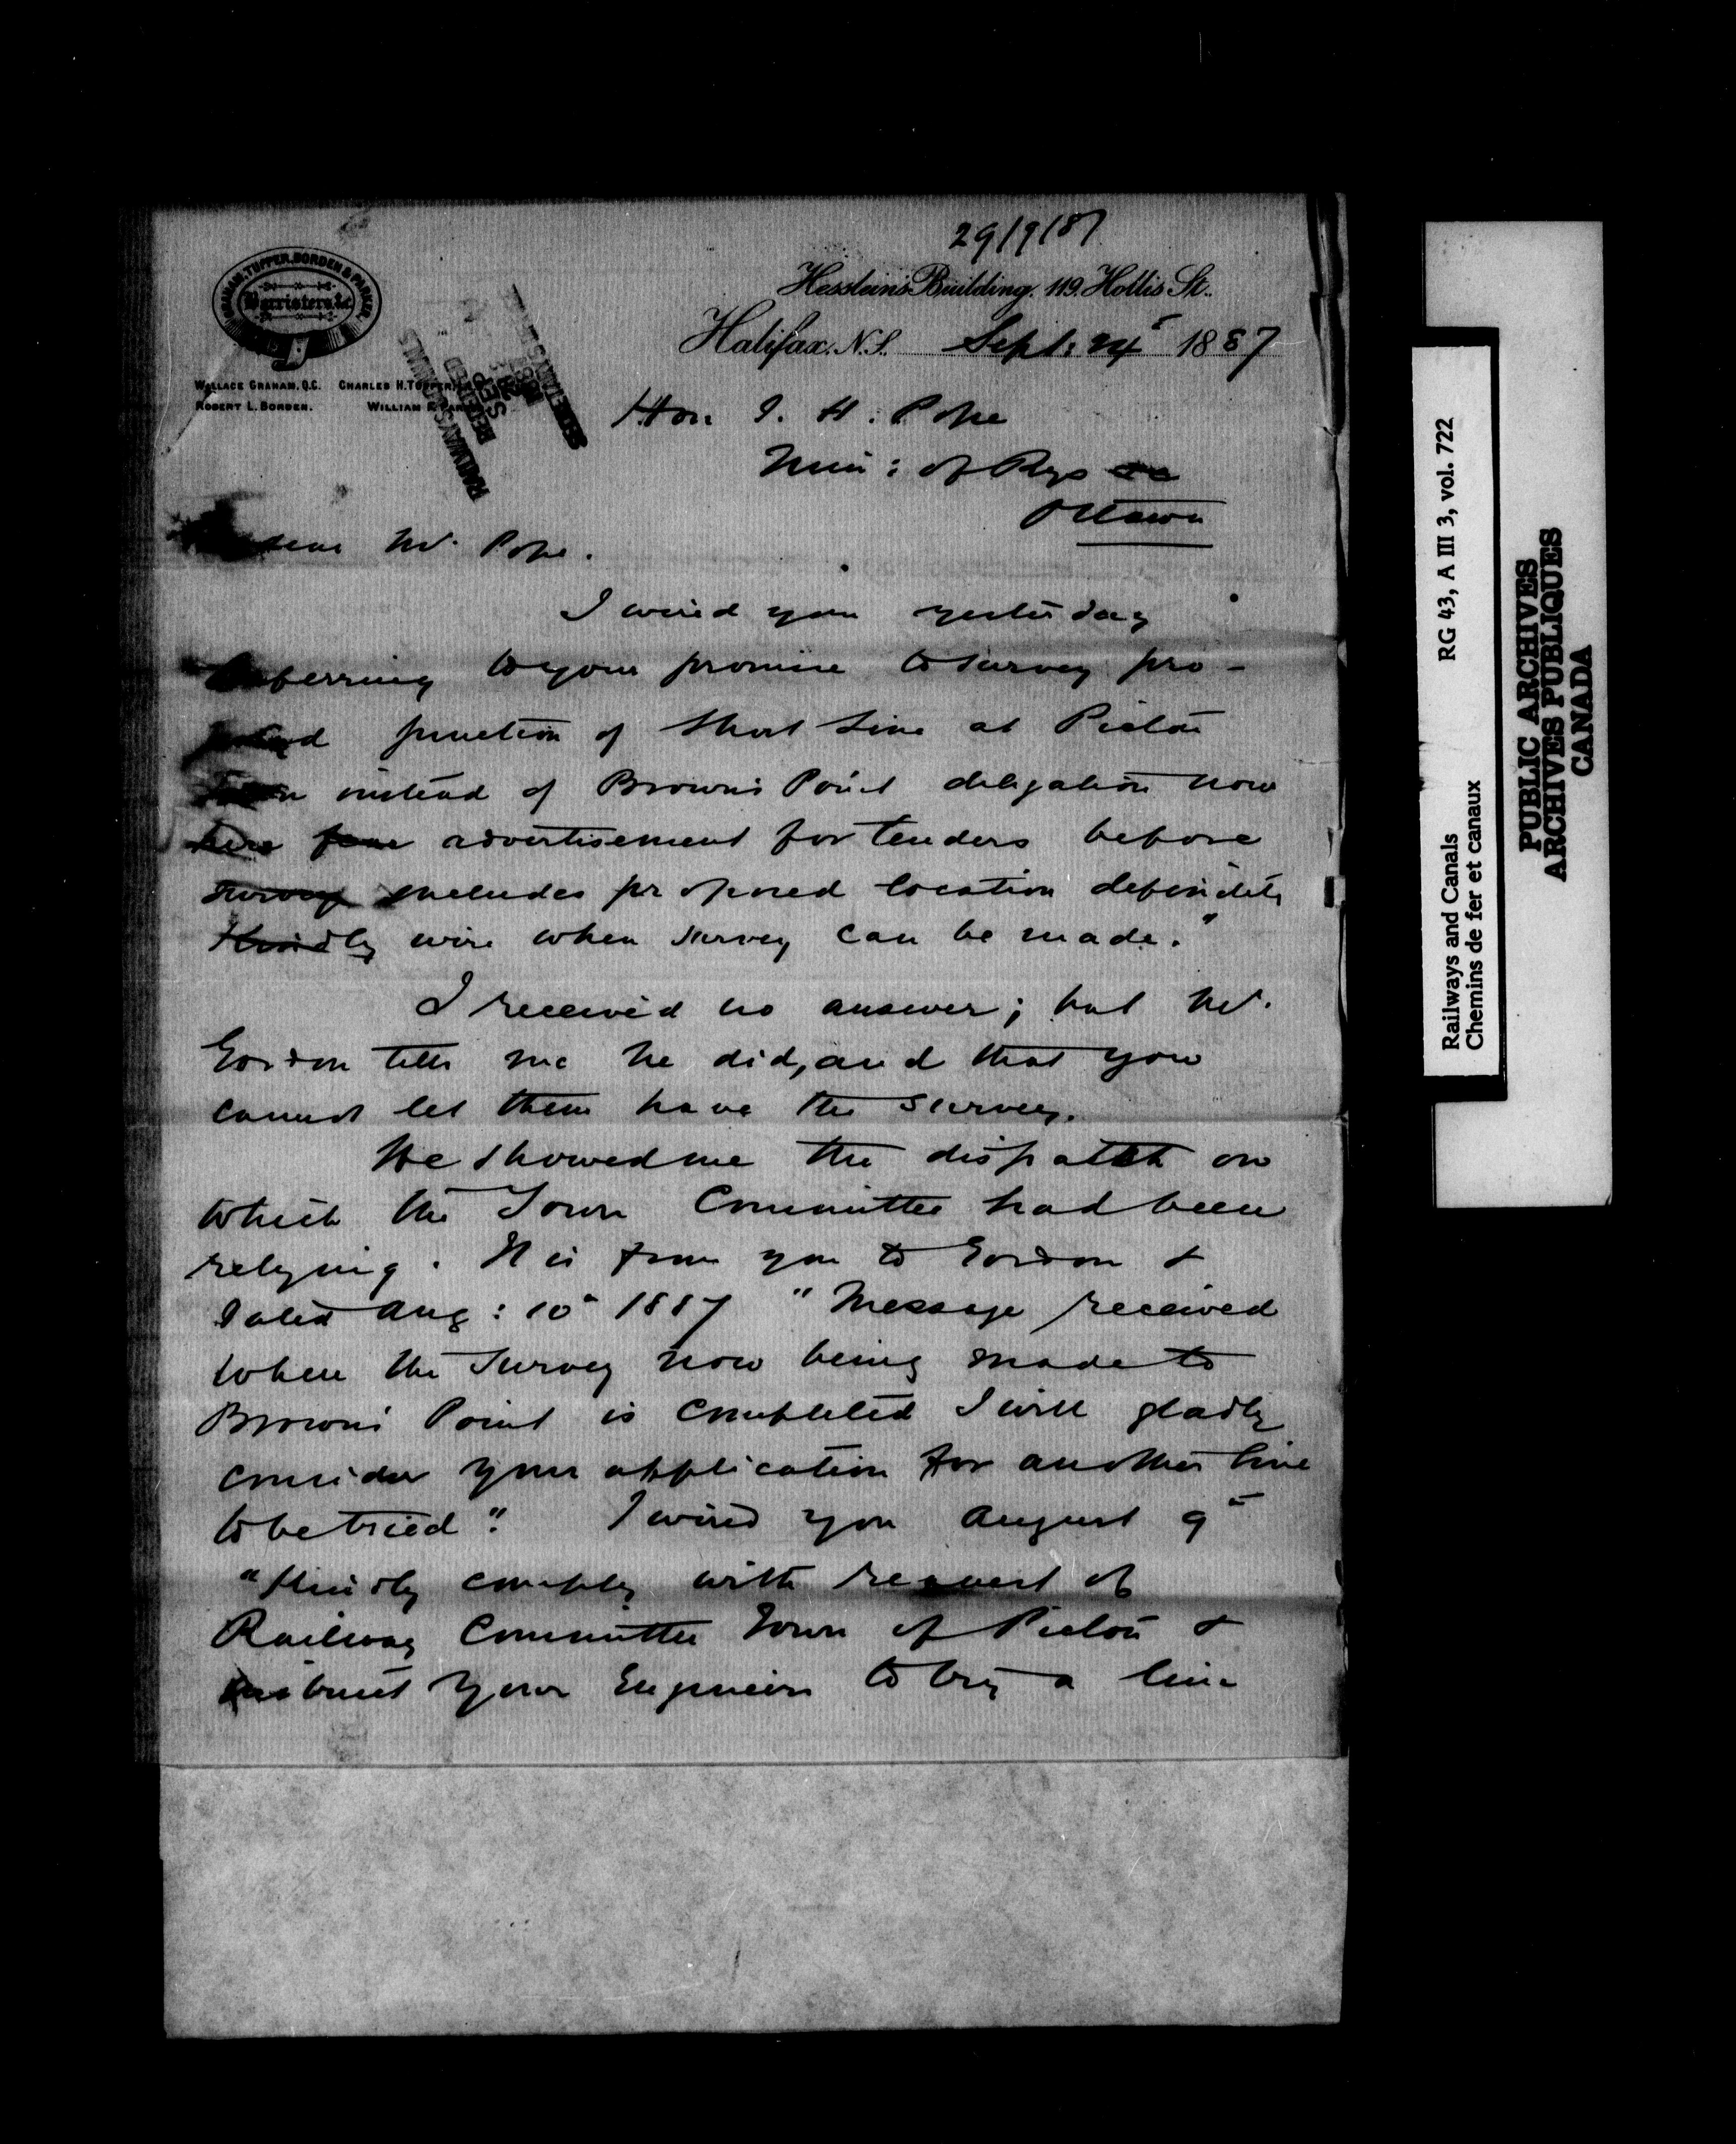 29/9/87
GRAHAM, TUPPER, BORDEN & PARKER
Barristers &c
Hessleins Building, 119 Hollis St.
Halifax, N.S. Sept: 24 1887
WALLACE GRAHAM, Q.C. CHARLES H. TUPPER
ROBERT L. BORDEN. WILLIAM F. PARKER
RAILWAYS & CANALS
Hon J. H. Pope
Min: of Rys &c
Ottawa
Dear Mr. Pope.
I wired you yesterday
Referring to your promise to survey pro-
posed junction of Short Line at Pictou
Town instead of Browns Point delegation now
here fear advertisement for tenders before
survey includes proposed location definitely
Kindly wire when survey can be made."
I received no answer; but Mr.
Gordon tells me he did, and that you
cannot let them have the survey.
He showed me the dispatch on
which the Town Committee had been
relying. It is from you to Gordon &
dated Aug: 10 1887 "Message received
when the survey now being made to
Browns Point is completed I will gladly
consider your application for another line
to be tried". I wired you August 9
"Kindly comply with request of
Railway Committee Town of Pictou &
instruct your Engineers to try a line
Railways and Canals RG 43, A III 3, vol. 722
Chemins de fer et canaux
PUBLIC ARCHIVES
ARCHIVES PUBLIQUES
CANADA